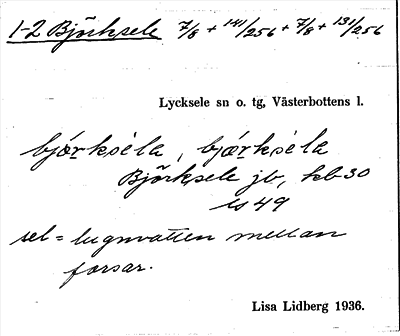 1-2 Björksele 7/8 + 141/256 + 7/8 + 131/256
Lycksele sn o. tg, Västerbottens l.
bjǿrkse̍la, bjǿrkse̍la
Björksele jb, kb 30
ls 49
sel = lugnvatten mellan
forsar.
Lisa Lidberg 1936.